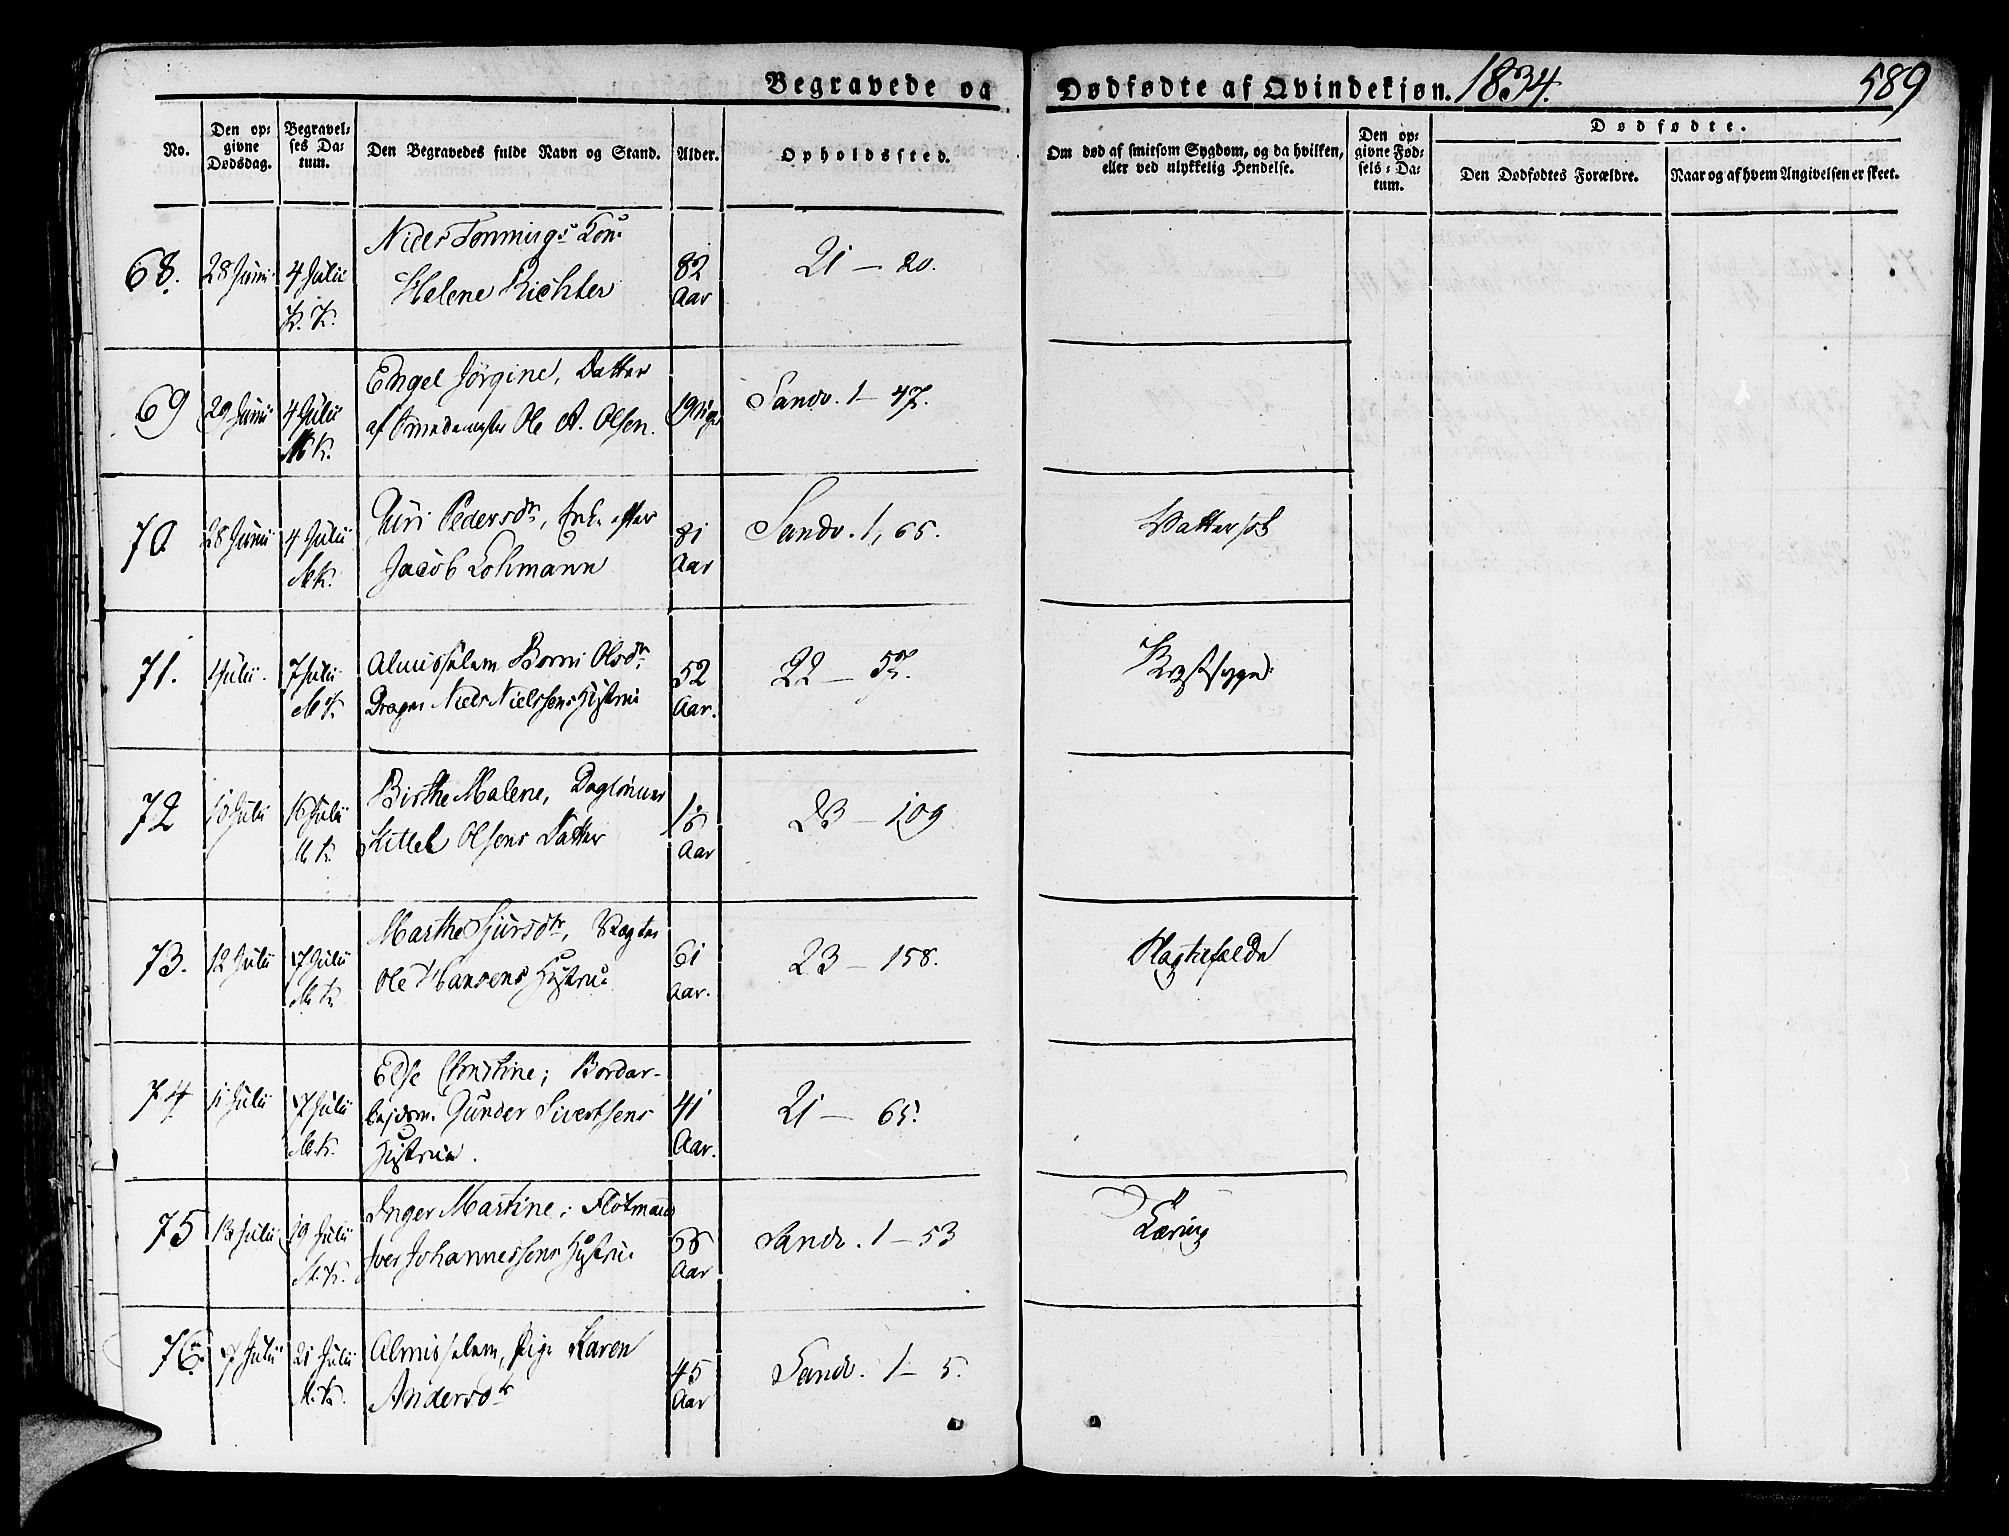 Begravede og Dødfødte af Qvindekjøn. 1834. 589
No.
Den op-
givne
Dødsdag.
Begravel-
ses Da-
tum.
Den Begravedes fulde Navn og Stand.
Alder.
Opholdssted.
Om død af smitsom Sygdom, og da hvilken,
eller ved ulykkelig Hendelse.
Den op-
givne Fød-
sels-Da-
tum.
Dødfødte.
Den Dødfødtes Forældre.
Naar og af hvem Angivelsen er skeet.
68. 28 Junii 4 Julii
Niels Tonnings Kone
Helene Richter
82
Aar
21 — 20.
69 29 Junii 4 Julii
M K.
Engel Jörgine, Datter
af Ole A. Olsen.
Sandv. 1 — 47.
70 28 Junii 4 Julii
M K.
Guri Pedersdr, Enke efter
Jacob Lohmann
81
Aar
Sandv. 1, 65.
Vattersot
71. 1 Julii. 7 Julii
M K.
Almisselem Borni Olsdr
Drager Niels Nielssens Hustrue
52
Aar.
22 — 57.
Brystsyge
72 10 Julii 16 Julii
M K.
Birthe Malene, Daglønner
Kittel Olsens Datter
16
Aar
23 — 109
73. 12 Julii 17 Julii
M K.
Marthe Sjursdr, Vægter
Ole Hansens Hustrue
61
Aar.
23 — 158.
74 11 Julii 17 Julii
M K.
Else Christine; Bordar-
bejdsm. Gunder Sivertsens
Hustrue.
41
Aar.
21 — 65.
75 13 Julii 19 Julii
M. K.
Inger Martine; Flotmand
Iver Johannessens Hustrue
66
Aar
Sandv. 1 — 53
Tæring
76. 17 Julii 21 Julii
M. K.
Almisselem, Pige Karen
Andersdr
45
Aar
Sandv. 1 — 5.